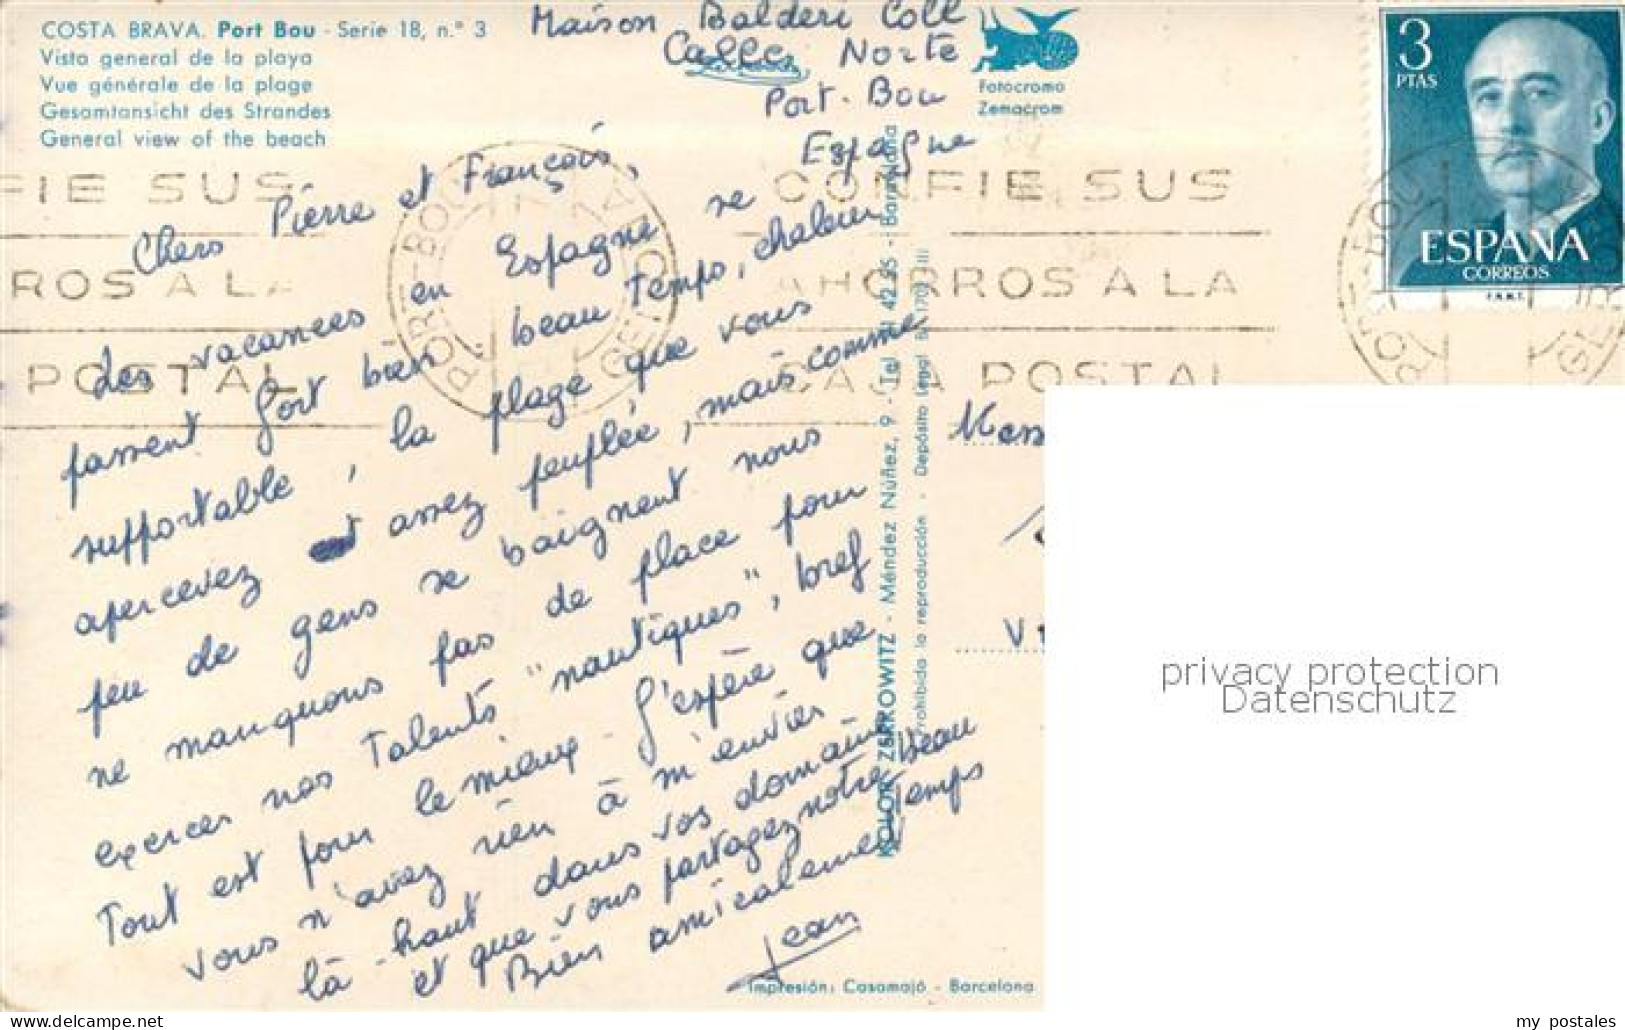 COSTA BRAVA. Port Bou - Serie 18, n.° 3
Vista general de la playa
Vue générale de la plage
Gesamtansicht des Strandes
General view of the beach
Maison Balderi Coll
Calle Norte
Port-Bou
Espagne
Fotocromo
Zemacrom
3
PTAS
ESPAÑA
CORREOS
F.N.M.T.
FIE SUS
ROS A LA
POSTAL
PORT-BOU
GERONA
CONFIE SUS
AHORROS A LA
CAJA POSTAL
PORT-BOU
Chers Pierre et François,
des vacances en Espagne se
passent fort bien. beau Temps, chaleur
supportable, la plage que vous
apercevez est assez peuplée, mais comme
peu de gens se baignent nous
ne manquons pas de place pour
exercer nos Talents "nautiques", bref
Tout est pour le mieux. J'espère que
vous n'avez rien à m'envier
là-haut dans vos domaines
et que vous partagez notre beau
Temps
Bien amicalement
Jean
KOLOR-ZERKOWITZ - Méndez Núñez, 9 - Tel. 42 25 - Barcelona
Prohibida la reproducción - Depósito Legal B.
Impresión: Casamajó - Barcelona
privacy protection
Datenschutz
my_postales